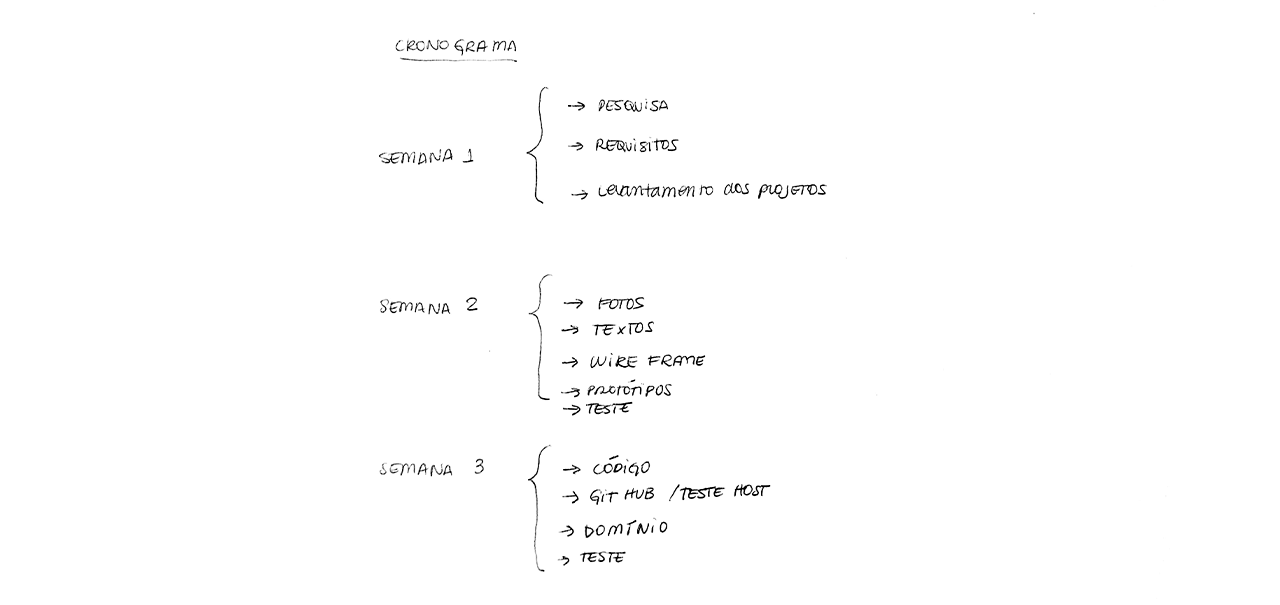 CRONOGRAMA
SEMANA 1
→ PESQUISA
→ REQUISITOS
→ Levantamento dos PROJETOS
SEMANA 2
→ FOTOS
→ TEXTOS
→ WIRE FRAME
→ PROTÓTIPOS
→ TESTE
SEMANA 3
→ CÓDIGO
→ GIT HUB / TESTE HOST
→ DOMÍNIO
→ TESTE